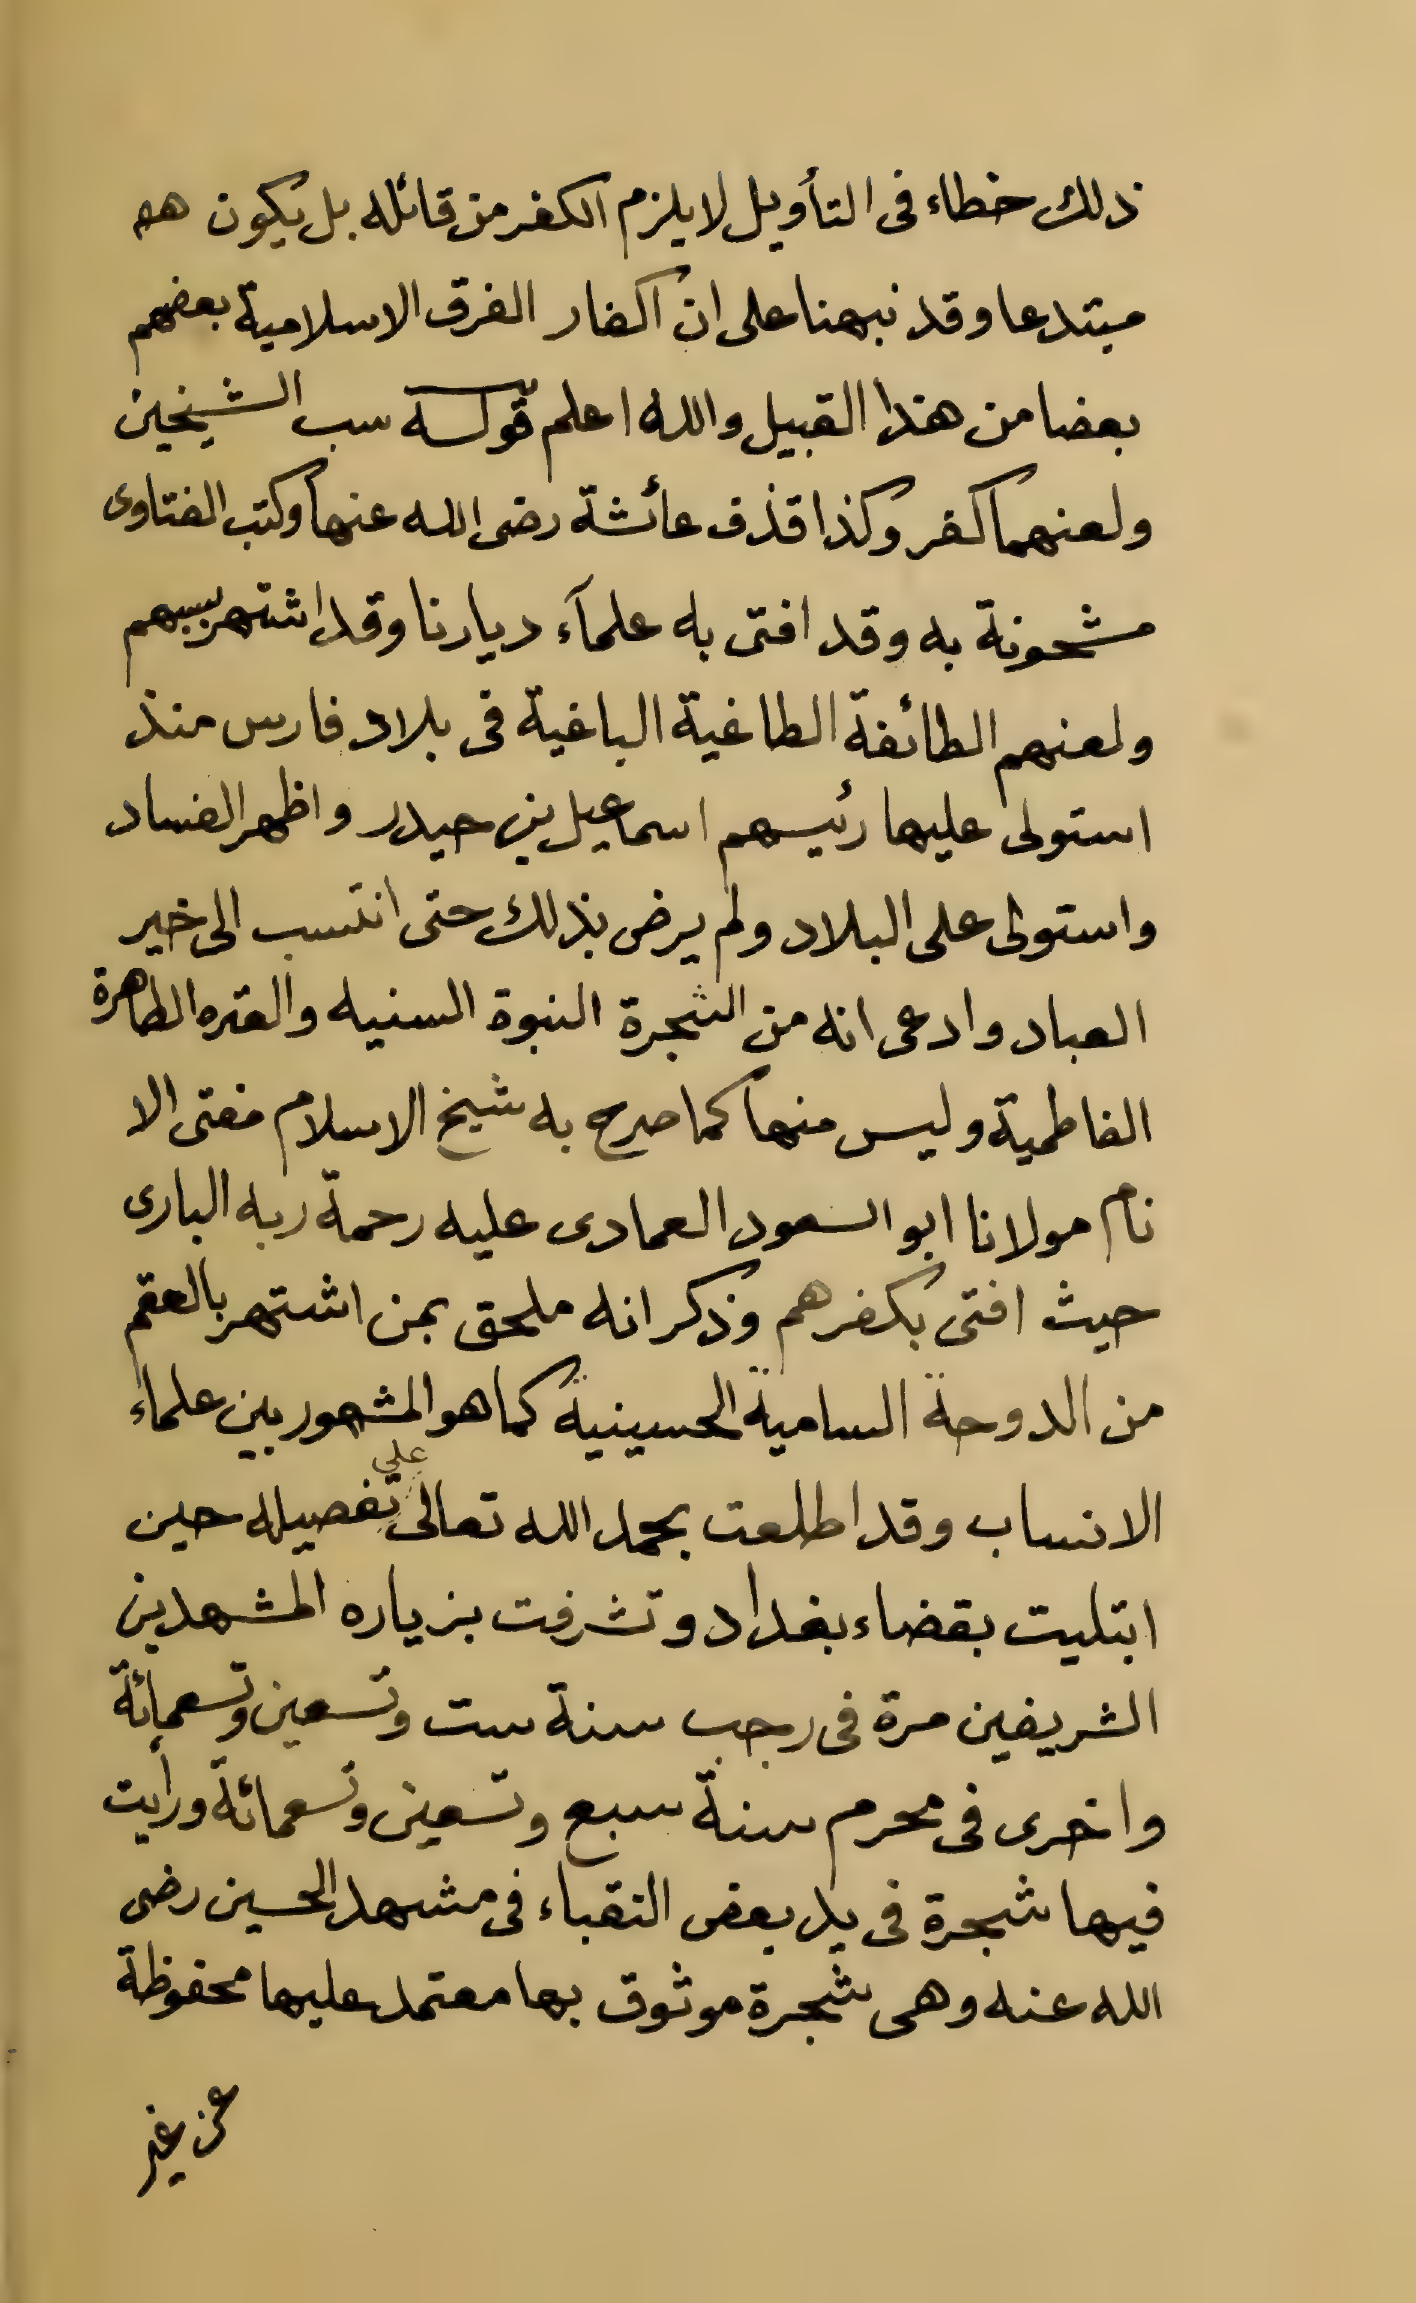 ذلك خطاء فى التأويل لا يلزم الكفر من قائله بل يكون هه
مبتدعا وقد نبهنا على ان اكفار الفرق الاسلامية بعضهم
بعضا من هذا القبيل والله اعلم قوله سب الشيخين
ولعنهما كفر وكذا قذف عائشة رضى الله عنها وكتب الفتاوى
مشحونة به وقد افتى به علمآء ديارنا وقد اشتهر بسبهم
ولعنهم الطائفة الطاغية الباغية فى بلاد فارس منذ
استولى عليها رئيسهم اسماعيل بن حيدر واظهر الفساد
واستولى على البلاد ولم يرض بذلك حتى انتسب الى خير
العباد وادعى انه من الشجرة النبوة السنيه والعتره الطاهرة
الفاطمية وليس منها كما صرح به شيخ الاسلام مفتى الا
نام مولانا ابو السعود العمادى عليه رحمة ربه البارى
حيث افتى بكفرهم وذكر انه ملحق بمن اشتهر بالعقم
من الدوحة السامية الحسينية كما هو المشهور بين علماء
الانساب وقد اطلعت بحمد الله تعالى على تفصيله حين
ابتليت بقضاء بغداد وتشرفت بزياره المشهدين
الشريفين مرة فى رجب سنة ست وتسعين وتسعمائة
واخرى فى محرم سنة سبع وتسعين وتسعمائة ورأيت
فيها شجرة فى يد بعض النقباء فى مشهد الحسين رضى
الله عنه وهى شجرة موثوق بها معتمد عليها محفوظة
عن غير